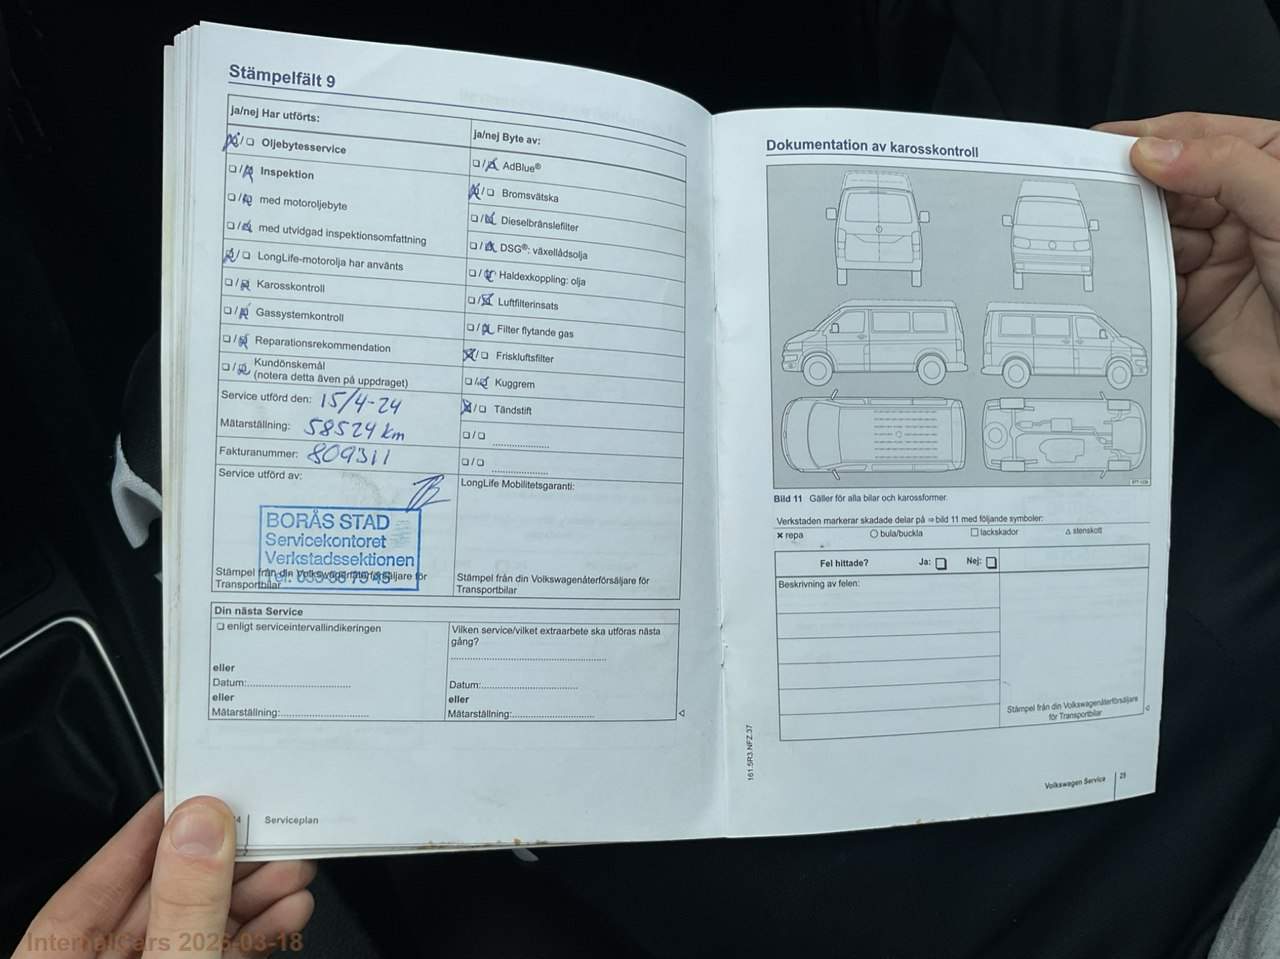 Stämpelfält 9
ja/nej Har utförts:
❏/❏ Oljebytesservice
❏/❏ Inspektion
❏/❏ med motoroljebyte
❏/❏ med utvidgad inspektionsomfattning
❏/❏ LongLife-motorolja har använts
❏/❏ Karosskontroll
❏/❏ Gassystemkontroll
❏/❏ Reparationsrekommendation
❏/❏ Kundönskemål
(notera detta även på uppdraget)
Service utförd den: 15/4-24
Mätarställning: 58524 km
Fakturanummer: 809311
Service utförd av:
BORÅS STAD
Servicekontoret
Verkstadssektionen
Stämpel från din Volkswagenåterförsäljare för
Transportbilar
ja/nej Byte av:
❏/❏ AdBlue®
❏/❏ Bromsvätska
❏/❏ Dieselbränslefilter
❏/❏ DSG®: växellådsolja
❏/❏ Haldexkoppling: olja
❏/❏ Luftfilterinsats
❏/❏ Filter flytande gas
❏/❏ Friskluftsfilter
❏/❏ Kuggrem
❏/❏ Tändstift
❏/❏ ....................
❏/❏ ....................
LongLife Mobilitetsgaranti:
Stämpel från din Volkswagenåterförsäljare för
Transportbilar
Din nästa Service
❏ enligt serviceintervallindikeringen
eller
Datum:....................
eller
Mätarställning:....................
Vilken service/vilket extraarbete ska utföras nästa
gång?
....................
Datum:....................
eller
Mätarställning:....................
Serviceplan
Dokumentation av karosskontroll
Bild 11 Gäller för alla bilar och karossformer.
Verkstaden markerar skadade delar på ⇒ bild 11 med följande symboler:
✖ repa ○ bula/buckla □ lackskador △ stenskott
Fel hittade? Ja: ❏ Nej: ❏
Beskrivning av felen:
Stämpel från din Volkswagenåterförsäljare
för Transportbilar
161.5R3.NFZ.37
Volkswagen Service 25
InternalCars 2026-03-18